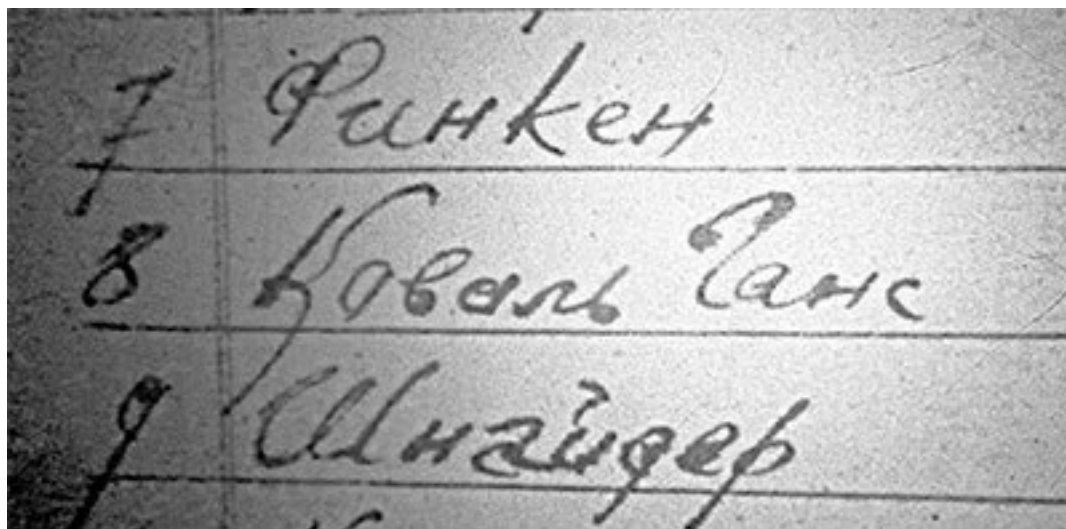 7 Финкен
8 Коваль Ганс
9 Шнайдер